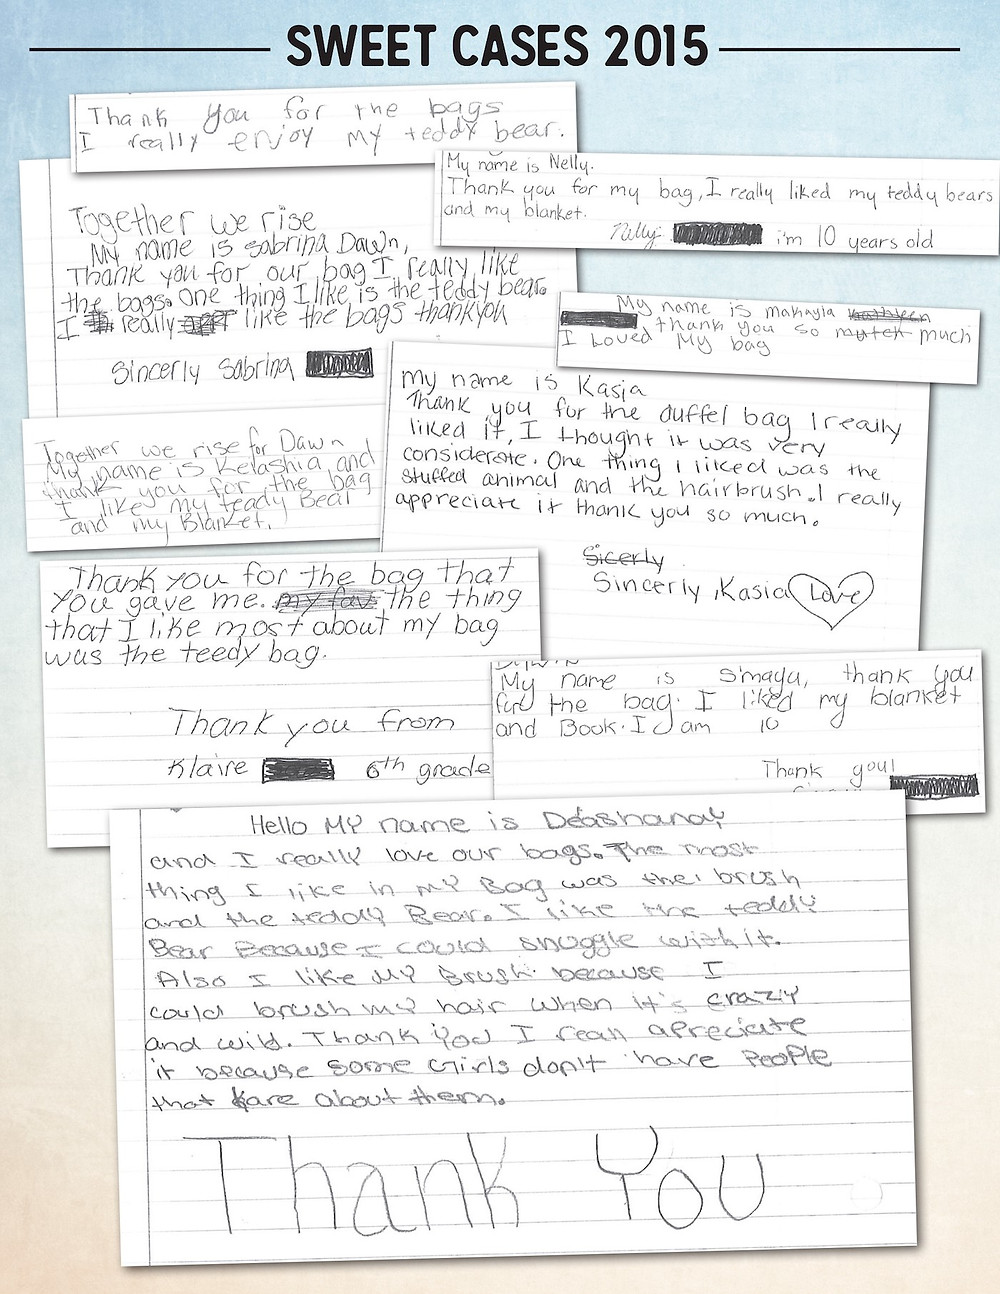 SWEET CASES 2015
Thank you for the bags
I really enjoy my teddy bear.
My name is Nelly.
Thank you for my bag, I really liked my teddy bears
and my blanket.
Nelly i'm 10 years old
Together we rise
My name is Sabrina Dawn,
Thank you for our bag I really like
the bags. One thing I like is the teddy bear.
I really like the bags thankyou
Sincerly Sabrina
My name is makayla kathleen
thank you so mutch much
I Loved My bag
My name is Kasia
Thank you for the duffel bag I really
liked it, I thought it was very
considerate. One thing I liked was the
stuffed animal and the hairbrush. I really
appreciate it thank you so much.
Sicerly
Sincerly, Kasia Love
Together we rise for Dawn
My name is Kelashia and
thank you for the bag
I like my teady Bear
and my Blanket.
Thank you for the bag that
you gave me. my fav the thing
that I like most about my bag
was the teedy bag.
Thank you from
Klaire 6th grade
My name is S'maya, thank you
for the bag. I liked my blanket
and Book. I am 10
Thank you!
Hello MY name is Deashanay
and I really love our bags. The most
thing I like in MY Bag was the brush
and the teddy Bear. I like the teddy
Bear Because I could snuggle with it.
Also I like MY Brush because I
could brush my hair when it's crazy
and wild. Thank You I reall apreciate
it because some Girls don't have People
that kare about them.
Thank You